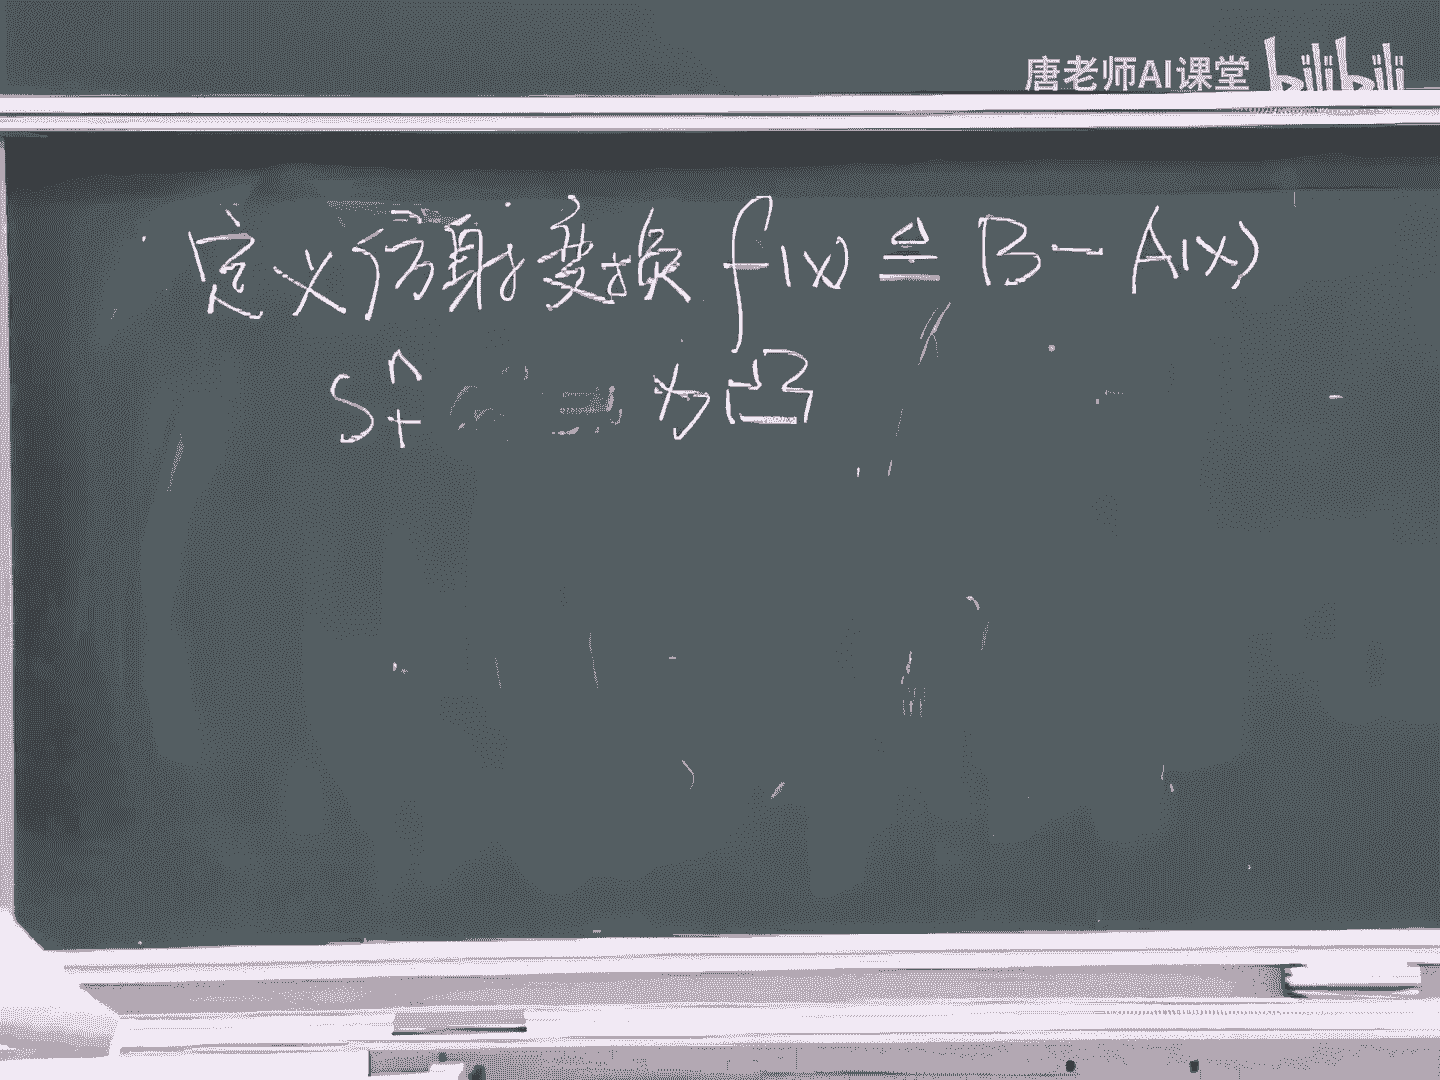 唐老师AI课堂 bilibili
定义仿射变换 f(x) ≜ B - A(x)
S₊ⁿ 为凸